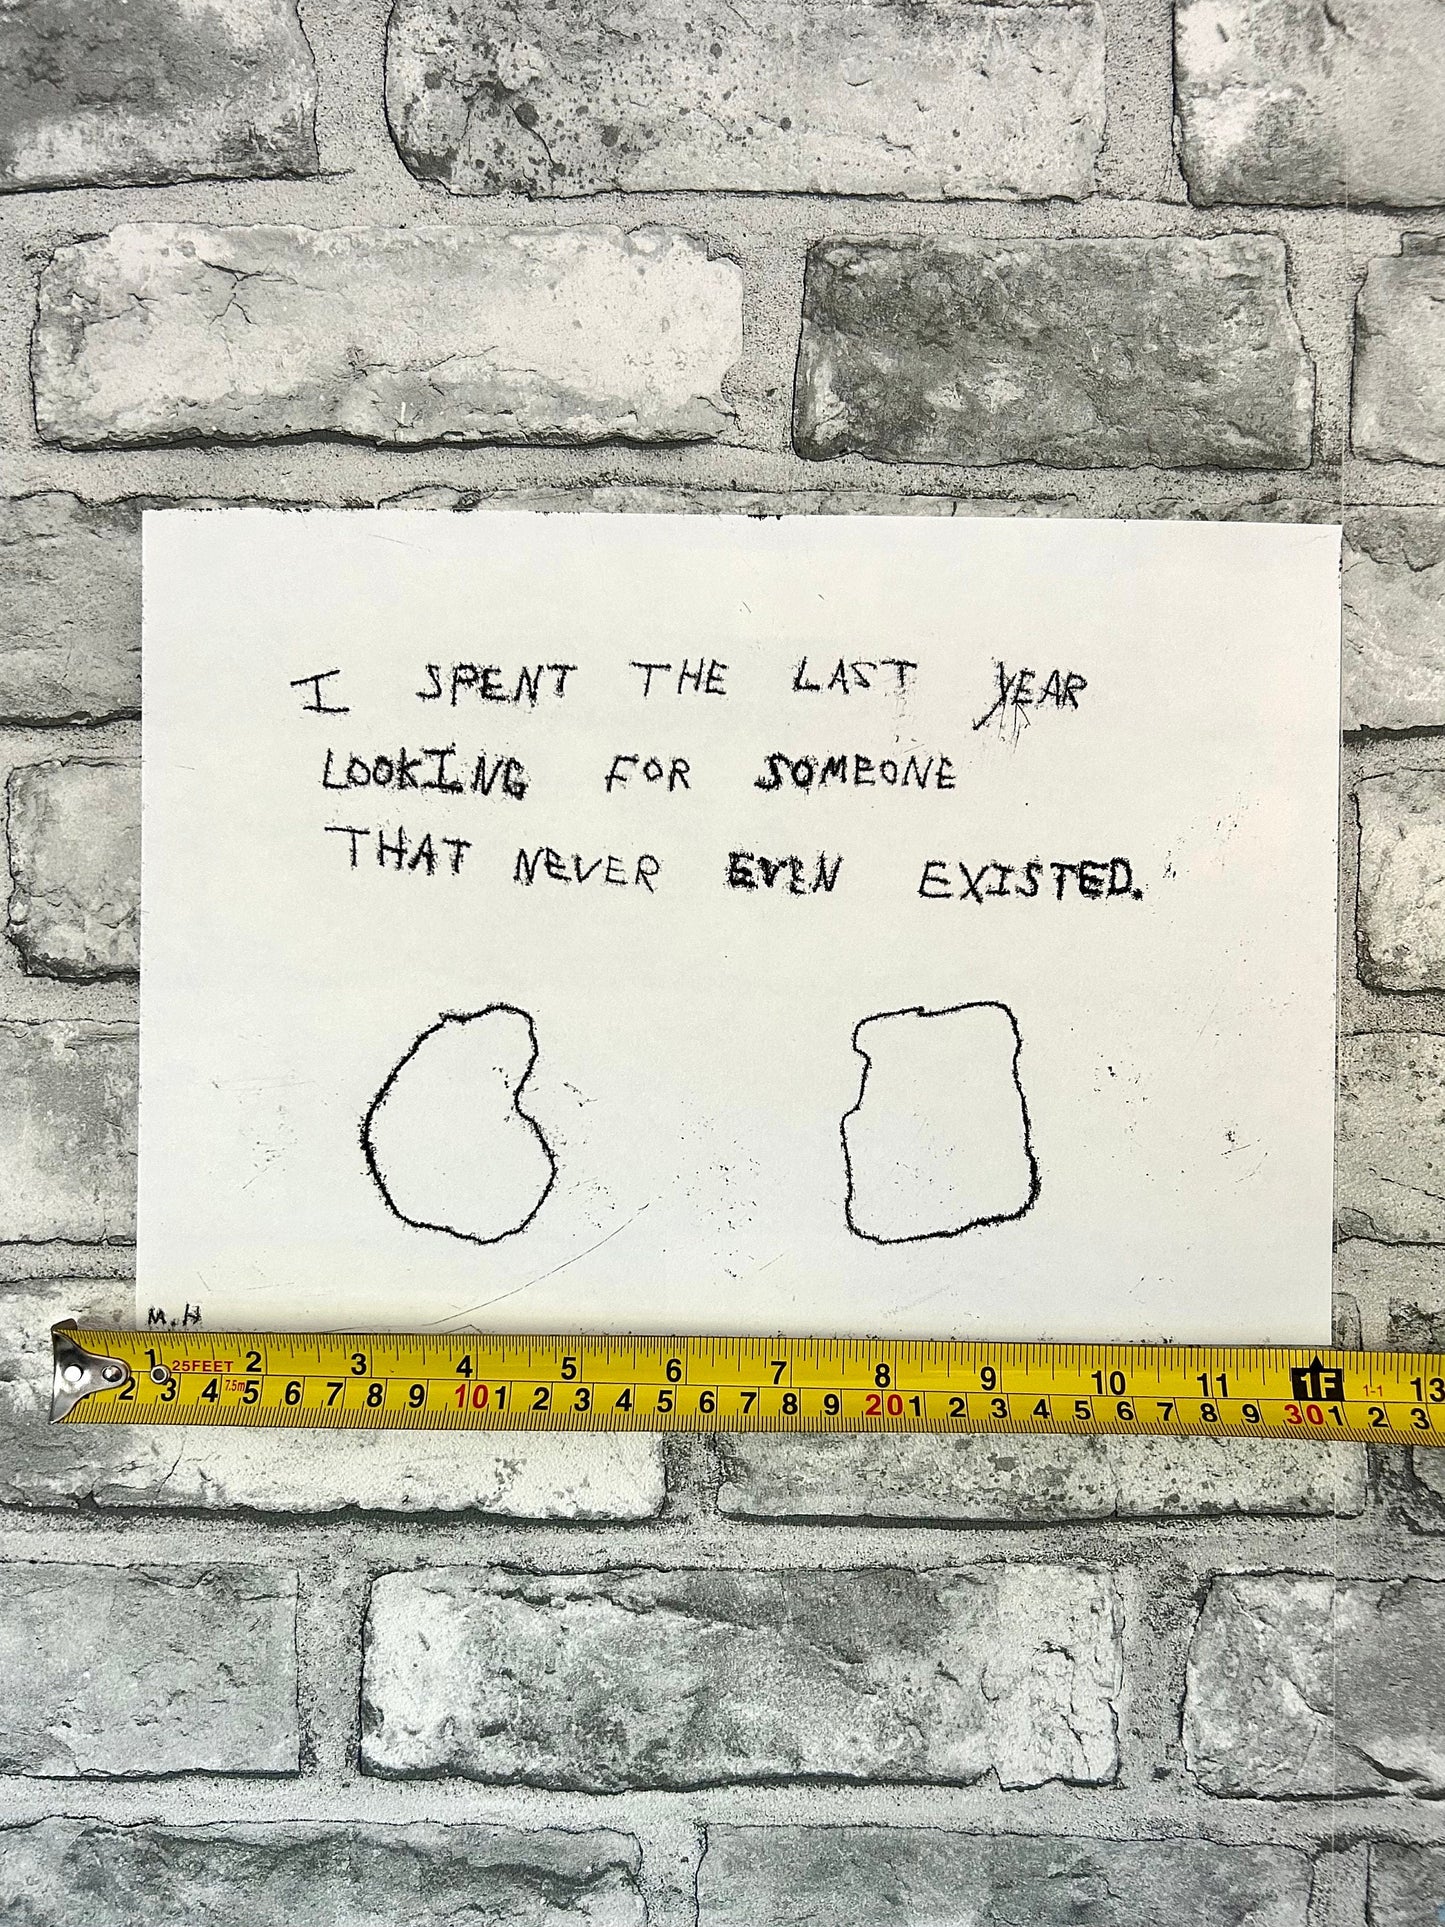 I SPENT THE LAST YEAR
LOOKING FOR SOMEONE
THAT NEVER EVEN EXISTED.
M.H
1 25FEET 2 3 4 5 6 7 8 9 10 11 1F 1-1 13
2 3 4 7.5m 5 6 7 8 9 10 1 2 3 4 5 6 7 8 9 20 1 2 3 4 5 6 7 8 9 30 1 2 3